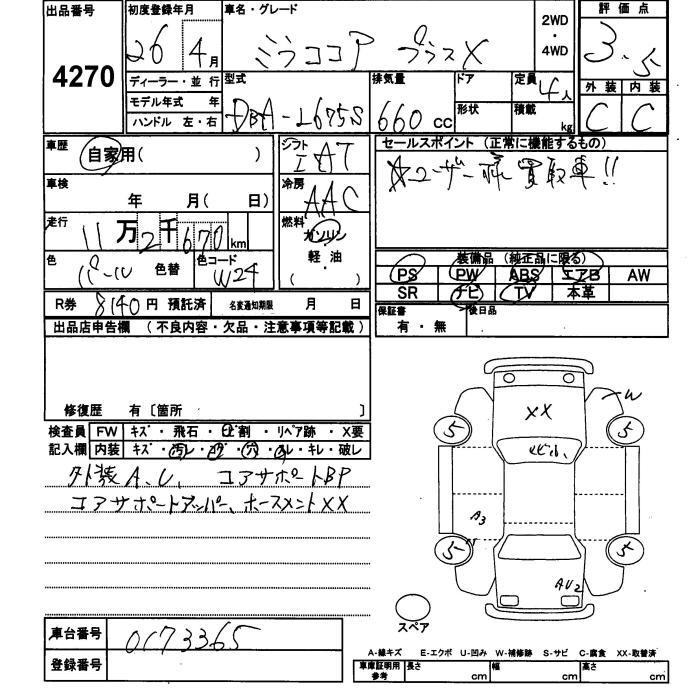 出品番号
4270
初度登録年月
26 4月
ディーラー・並行
モデル年式 年
ハンドル 左・右
車名・グレード
ミラココア プラスX
2WD
・
4WD
型式
DBA-L675S
排気量
660 CC
ドア
形状
定員 4人
積載 kg
評価点
3.5
外装 内装
C C
車歴
自家用( )
車検
年 月( 日)
走行
11万2千670km
色
パール 色替
色コード
W24
シフト
IAT
冷房
AAC
燃料
ガソリン
軽・油
( )
セールスポイント (正常に機能するもの)
☆ユーザー 買取車!!
装備品 (純正品に限る)
PS PW ABS エアB AW
SR ナビ TV 本革
R券 8140円 預託済 名変通知期限 月 日
保証書
有・無
後日品
出品店申告欄 (不良内容・欠品・注意事項等記載)
修復歴 有〔箇所 〕
検査員
記入欄
FW キズ・飛石・ヒビ割・リペア跡・X要
内装 キズ・汚レ・コゲ・穴・スレ・キレ・破レ
外装A.U、 コアサポートBP
コアサポートアッパー、ホースメントXX
XX
W
5 5
ヒビ小
A3
5 5
AU2
スペア
車台番号 0173365
登録番号
A-線キズ E-エクボ U-凹み W-補修跡 S-サビ C-腐食 XX-取替済
車庫証明用
参考
長さ cm 幅 cm 高さ cm